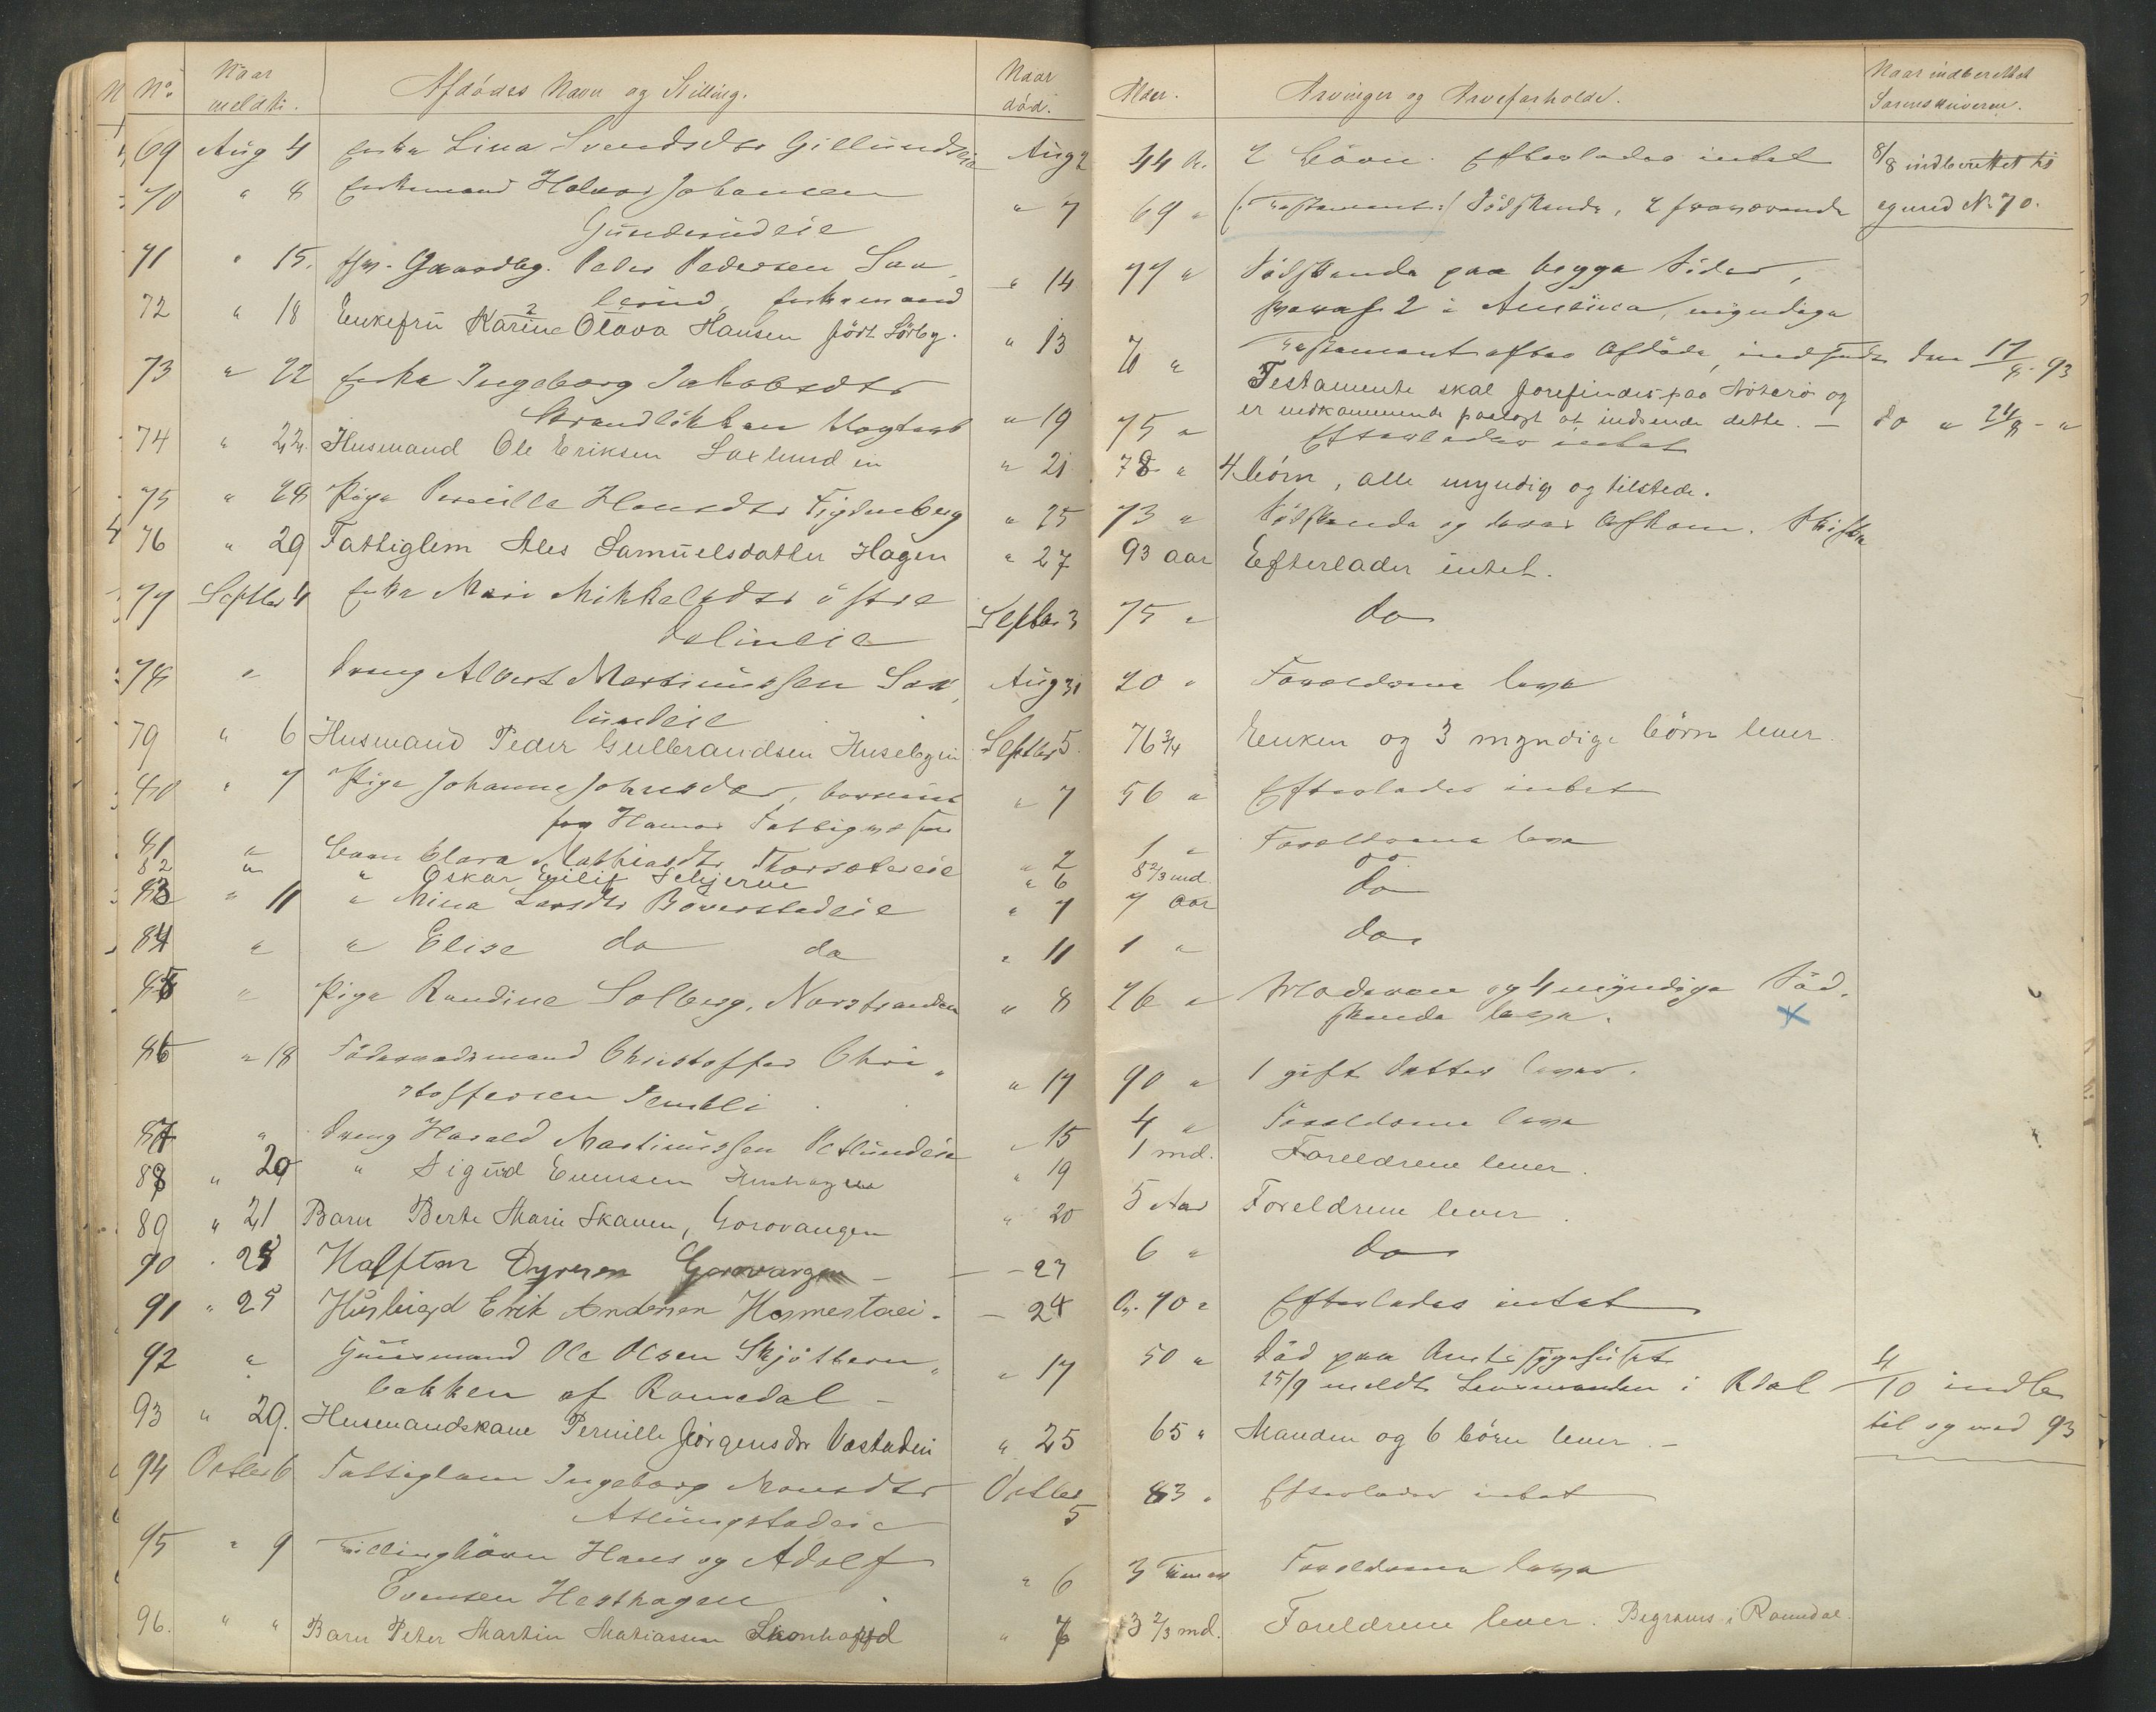 No. Naar meldt. Afdödes Navn og Stilling. Naar död. Alder. Arvinger og Arveforholde. Naar indberettet Sorenskriveren.
69 Aug 4 Enke Lina Svendsdtr Gillundseie Aug 2 44 A. 2 börn. Efterlader intet 8/8 indberettet til
70 " 8 Enkemand Halvor Johansen " 7 69 " (: Testament :) Södskende, 2 fraværende og med No 70.
Gunderudeie
71 " 15. fhv. Gaardbg. Peder Pedersen Sax, " 14 77 " Södskende paa begge Sider,
lund, Enkemand hvoraf 2 i Amerika, myndige
72 " 18 Enkefru Karine Olava Hansen född Sörby. " 13 Testament efter Afdöde, indsendt den 17/8 93
73 " 22 Enke Ingeborg Jakobsdtr Testamente skal forefindes paa Nöterö og
Strandlökken Vogter " 19 75 " er vedkommende paalagt at indsende dette. — do " 24/8 - "
Efterlader intet
74 " 22. Husmand Ole Eriksen Saxlund ei " 21 78 " 4 börn, alle myndig og tilstede.
75 " 28 Pige Pernille Hansdtr Figdenberg " 25 73 " Södskende og deres Afkom. Skifte
76 " 29 Fattiglem Ales Samuelsdatter Hagen " 27 93 aar Efterlader intet.
77 Septbr 4 Enke Mari Mikkelsdtr östre Septbr 3 75 " do
Dalineie
78 " Dreng Albert Martinussen Sax, Aug 31 20 " Forældrene leve
lundeie
79 " 6 Husmand Peder Gulbrandsen Husebyei Septbr 5. 76 3/4 Enken og 3 myndige börn lever.
80 " 7 Pige Johanne Johnsdtr, " 7 56 " Efterlader intet
Hamar Fattigvæsen
81 " barn Clara Mathiasdtr Thorsætereie " 2 1 " Forældrene leve
82 " " Oskar Eilif Schjerve " 6 8 2/3 md. do.
83 " 11 " Mina Larsdtr Boverstadeie " 7 7 aar do
84 " " Elise do do " 11 1 " do
85 " Pige Randine Solberg, Norstranden " 8 26 " Moderen og 4 myndige Söd,
skende leve.
86 " 18 Föderaadsmand Christoffer Chri, " 17 90 " 1 gift Datter lever.
stoffersen Jemtli
87 " Dreng Harald Martinussen Vetlundeie " 15 4 " Forældrene leve
88 " 20 " Sigurd Evensen " 19 1 md. Foreldrene lever.
89 " 21 Barn Berte Marie Skaven, Gorovangen " 20 5 Aar Foreldrene lever.
90 " 25 Halftan Dyresen Gorovangen — — 23 6 " do
91 " 25 Huslægd Erik Andersen Hommestaei. — 24 70 " Efterlader intet
92 " Gaardmand Ole Olsen Skjötbern, " 17 50 " Död paa Amtssygehuset
bakken af Romedal — 25/9 meldt Lensmanden i Rdal 4/10 indb
93 " 29. Husmandskone Pernille Jörgensdr Vestadei " 25 65 " Manden og 6 börn lever. — til og med 93
94 Octber 6 Fattiglem Ingeborg Monsdtr Octber 83 " Efterlader intet
Atlungstadeie 5
95 " 9 Tvillingbörn Hans og Adolf " 6 3 Timer Forældrene leve
Evensen Hesthagen
96. " " Barn Peter Martin Matiassen " 7 3 2/3 md. Foreldrene lever. Begraves i Romedal.